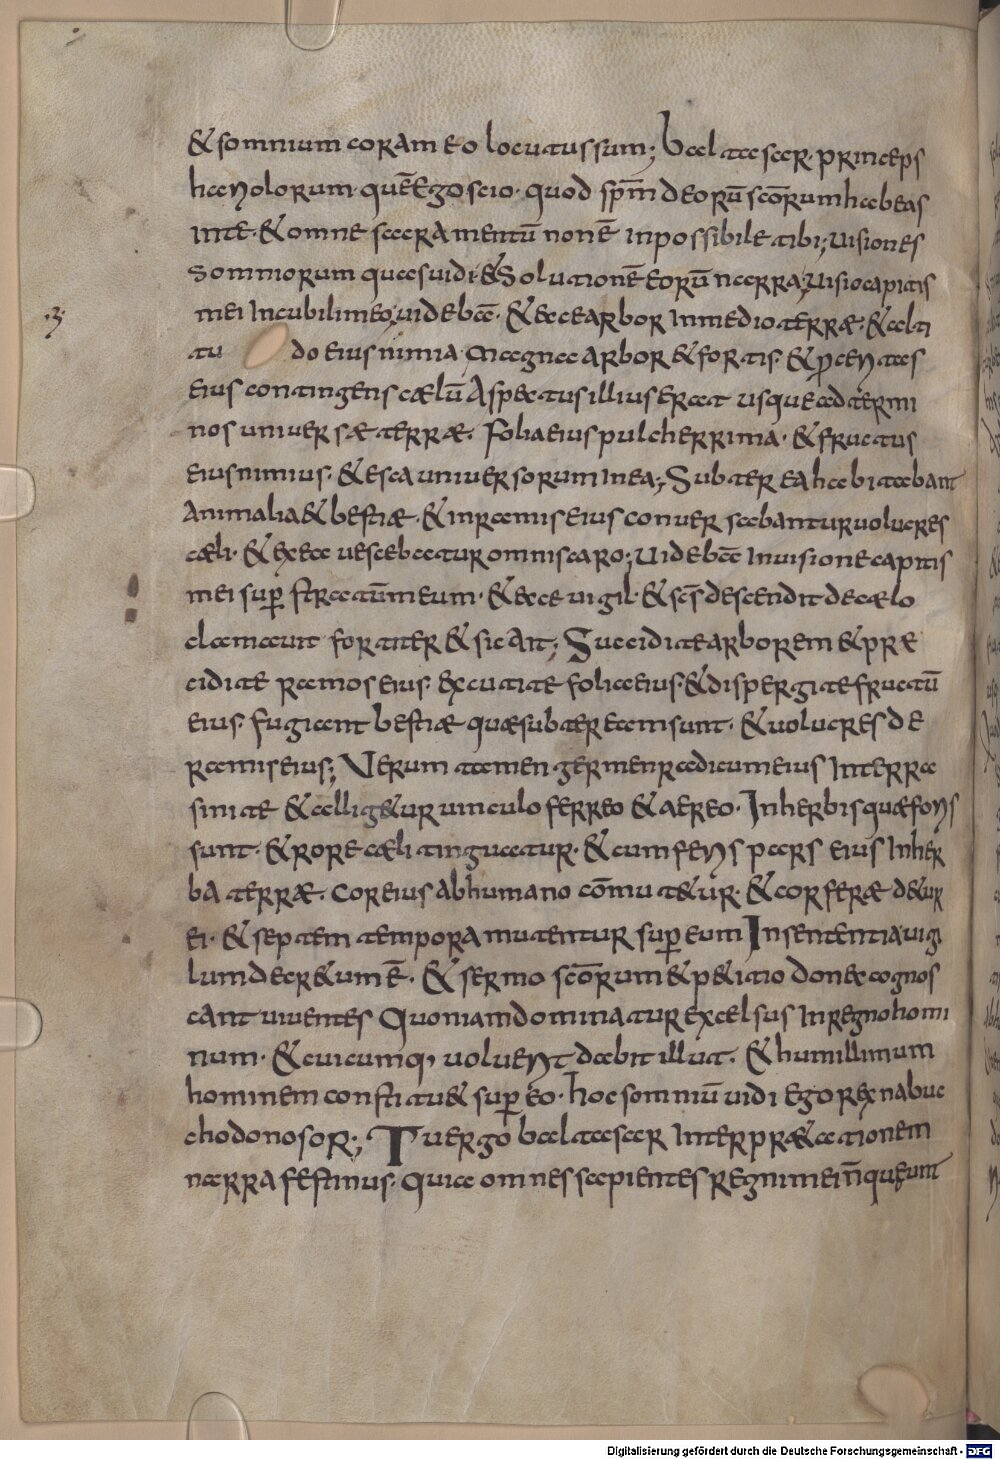 & somnium coram eo locutus sum; baltasar princeps
hariolorum quē ego scio. quod sp̄m deorū sc̄orum habeas
in te. & omne sacramentū non ē inpossibile tibi; uisiones
somniorum quas uidi & solutionē eorū narra; uisio capitis
mei in cubili meo; uidebā. & ecce arbor in medio terræ. & alti
tu do eius nimia. Magna arbor & fortis. & p̄ceritas
eius contingens cælū Aspectus illius erat usque ad termi
nos uniuersæ terræ. folia eius pulcherrima. & fructus
eius nimius. & esca uniuersorum in ea; Subter ea habitabant
Animalia & bestiæ. & in ramis eius conuersabantur uolucres
cæli. & ex ea uescebatur omnis caro; uidebā in uisione capitis
mei sup̄ stratū meum. & ecce uigil. & sc̄s descendit de cælo
clamauit fortiter & sic Ait; Succidite arborem & præ
cidite ramos eius. excutite folia eius. & dispergite fructū
eius. fugiant bestiæ quæ subter eam sunt. & uolucres de
ramis eius; Verum tamen germen radicum eius In terra
sinite & alligetur uinculo ferreo & aereo. In herbis quæ foris
sunt. & rore cæli tinguatur. & cum feris pars eius In her
ba terræ. cor eius ab humano cōmutetur. & cor feræ detur
ei. & septem tempora mutentur sup̄ eum In sententia uigi
lum decretum ē. & sermo sc̄orum & petitio donec cognos
cant uiuentes Quoniam dominatur excelsus In regno homi
num. & cuicumq, uoluerit dabit illut. & humillimum
hominem constituet sup̄ eo. hoc somniū uidi ego rex nabuc
chodonosor; Tu ergo baltasar Interprætationem
narra festinus. Quia omnes sapientes regni mei n̄ queunt
.3.
Digitalisierung gefördert durch die Deutsche Forschungsgemeinschaft - DFG